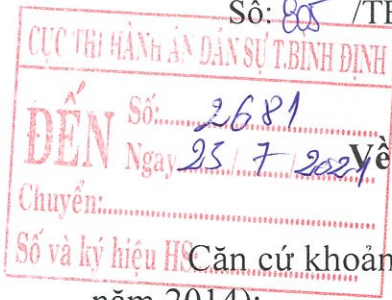 Số: 805 /TH
CỤC THI HÀNH ÁN DÂN SỰ T.BÌNH ĐỊNH
ĐẾN
Số: 2681
Ngày 23 / 7 / 2021
Về
Chuyển:
Số và ký hiệu HS
Căn cứ khoản
năm 2014);